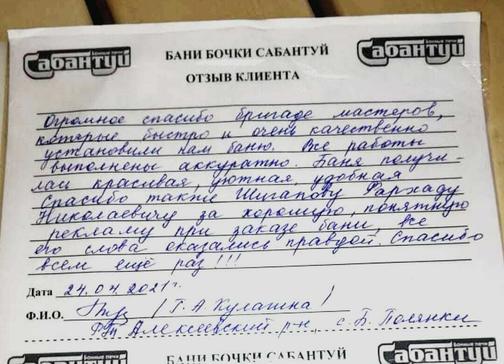 Банные печи
Сабантуй
БАНИ БОЧКИ САБАНТУЙ
ОТЗЫВ КЛИЕНТА
Банные печи
Сабантуй
Огромное спасибо бригаде мастеров,
которые быстро и очень качественно
установили нам баню. Все работы
выполнены аккуратно. Баня получи-
лась красивая, уютная, удобная
Спасибо также Шигапову Фархаду
Николаевичу за хорошую, понятную
рекламу при заказе бани, все
его слова оказались правдой. Спасибо
всем ещё раз!!!
Дата 24.04.2021г.
Ф.И.О. /Г.А Кулагина/
РТ Алексеевский р-н, с. Б. Полянки
БАНИ БОЧКИ САБАНТУЙ